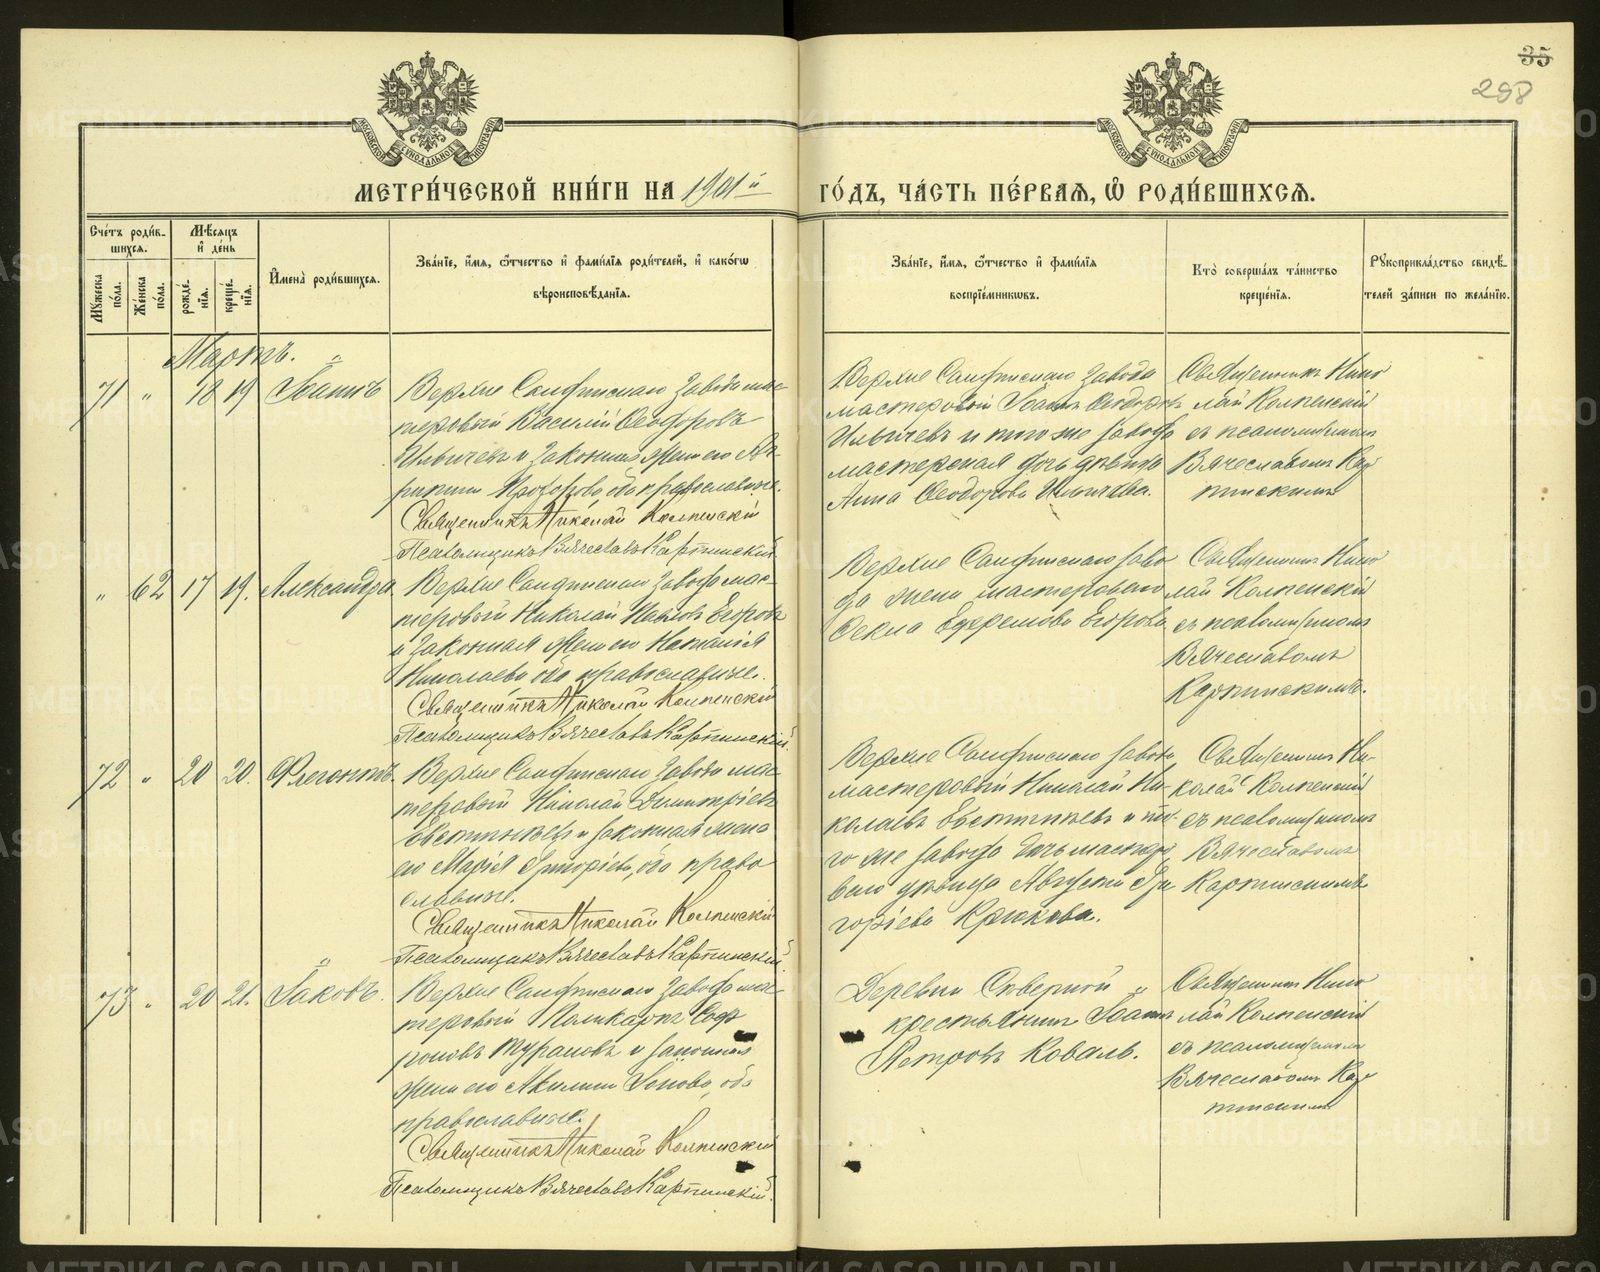 35
298
МОСКОВСКОЙ СѴНОДАЛЬНОЙ ТИПОГРАФІИ
МОСКОВСКОЙ СѴНОДАЛЬНОЙ ТИПОГРАФІИ
МЕТРИ́ЧЕСКОЙ КНИ́ГИ НА 1901й
ГО́ДЪ, ЧА́СТЬ ПЕ́РВАѦ, Ѡ҆ РОДИ́ВШИХСѦ.
Сче́тъ роди́в-
шихсѧ.
Мѣ́сѧцъ
и҆ де́нь
Мꙋ́жеска по́ла.
Же́нска по́ла.
рожде́-
нїѧ.
креще́-
нїѧ.
И҆мена̀ роди́вшихсѧ.
Зва́нїе, и҆́мѧ, ѻ҆́тчество и҆ фами́лїѧ роди́телей, и҆ како́гѡ
вѣроисповѣ́данїѧ.
Зва́нїе, и҆́мѧ, ѻ҆́тчество и҆ фами́лїѧ
воспрїе́мникѡвъ.
Кто̀ соверша́лъ та́инство
креще́нїѧ.
Рꙋкоприкла́дство свидѣ́-
телей за́писи по жела́нїю.
Мартъ.
71 " 18 19 Іоаннъ
Верхне Салдинскаго завода мас-
теровый Василій Ѳеодоровъ
Ильичевъ и законная жена его
Прохорова, оба православные.
Священникъ Николай Колпенскій
Псаломщикъ Вячеславъ Карпинскій
Верхне Салдинскаго завода
мастеровой Іоаннъ Ѳеодоровъ
Ильичевъ и того же завода
мастерская дочь дѣвица
Анна Ѳеодорова Ильичева.
Священникъ Нико
лай Колпенскій
съ псаломщикомъ
Вячеславомъ Кар
пинскимъ
" 62 17 19. Александра
Верхне Салдинскаго завода мас-
теровый Николай Павловъ Егоровъ
и законная жена его Наталія
Николаева, оба православные.
Священникъ Николай Колпенскій
Псаломщикъ Вячеславъ Карпинскій.
Верхне Салдинскаго заво
да жена мастероваго
Ѳекла Ефремова Егорова
Священникъ Нико
лай Колпенскій
съ псаломщикомъ
Вячеславомъ
Карпинскимъ.
72 " 20 20. Флегонтъ.
Верхне Салдинскаго завода мас
теровый Николай Димитріевъ
Евстигнѣевъ и законная жена
его Марія Григоріева, оба право
славные.
Священникъ Николай Колпенскій
Псаломщикъ Вячеславъ Карпинскій.
Верхне Салдинскаго завода
мастеровый Николай Ни-
колаевъ Евстигнѣевъ и то-
го же завода дочь мастеро
ваго дѣвица Августа Гри
горіева Крюкова.
Священникъ Ни-
колай Колпенскій
съ псаломщикомъ
Вячеславомъ
Карпинскимъ
73 " 20 21. Іаковъ.
Верхне Салдинскаго завода мас
теровый Поликарпъ Соф
роновъ Турановъ и законная
жена его Акилина Іонова, оба
православные.
Священникъ Николай Колпенскій
Псаломщикъ Вячеславъ Карпинскій.
Деревни Сѣверной
крестьянинъ Іоаннъ
Петровъ Коваль.
Священникъ Нико
лай Колпенскій
съ псаломщикомъ
Вячеславомъ Кар
пинскимъ